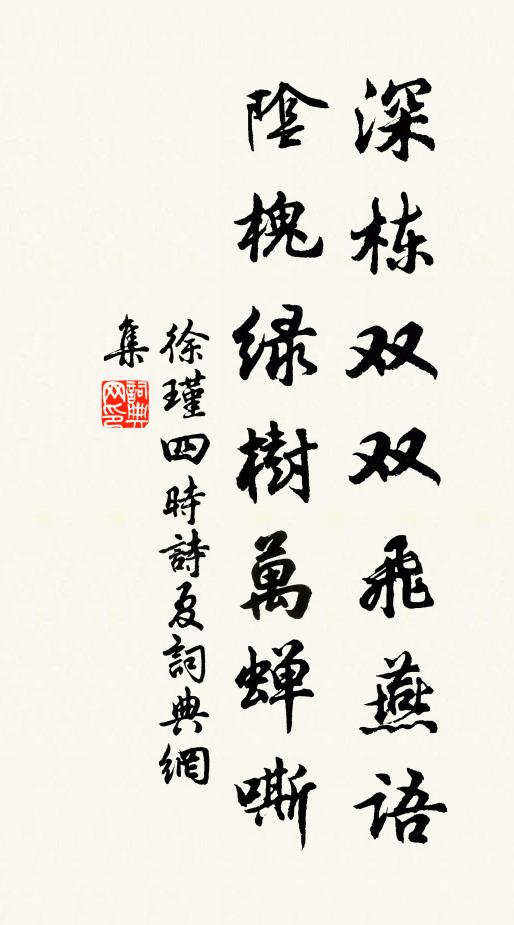 深栋双双飛燕語
陰槐绿樹萬蝉嘶
徐瑾四時詩夏詞典網
集
詞典
网印